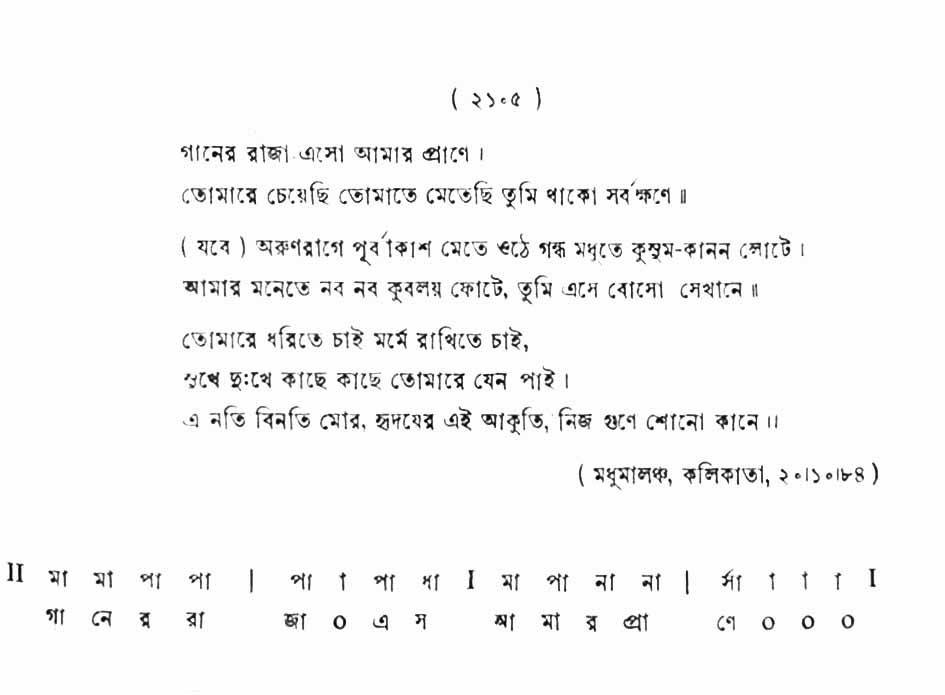 ( ২১০৫ )
গানের রাজা এসো আমার প্রাণে ।
তোমারে চেয়েছি তোমাতে মেতেছি তুমি থাকো সর্বক্ষণে ॥
( যবে ) অরুণরাগে পূর্বাকাশ মেতে ওঠে গন্ধ মধুতে কুসুম-কানন লোটে ।
আমার মনেতে নব নব কুবলয় ফোটে, তুমি এসে বোসো সেখানে ॥
তোমারে ধরিতে চাই মর্মে রাখিতে চাই,
সুখে দুঃখে কাছে কাছে তোমারে যেন পাই ।
এ নতি বিনতি মোর, হৃদয়ের এই আকুতি, নিজ গুণে শোনো কানে ॥
( মধুমালঞ্চ, কলিকাতা, ২০।১০।৮৪ )
II মা মা পা পা | পা া পা ধা I মা পা না না | র্সা া া া I
গা নে র রা জা ০ এ স আ মা র প্রা ণে ০ ০ ০